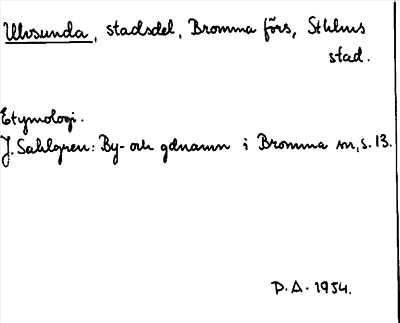 Ulvsunda, stadsdel, Bromma förs, Sthlms
stad.
Etymologi.
J. Sahlgren: By- och gdnamn i Bromma sn, s. 13.
D. A. 1954.